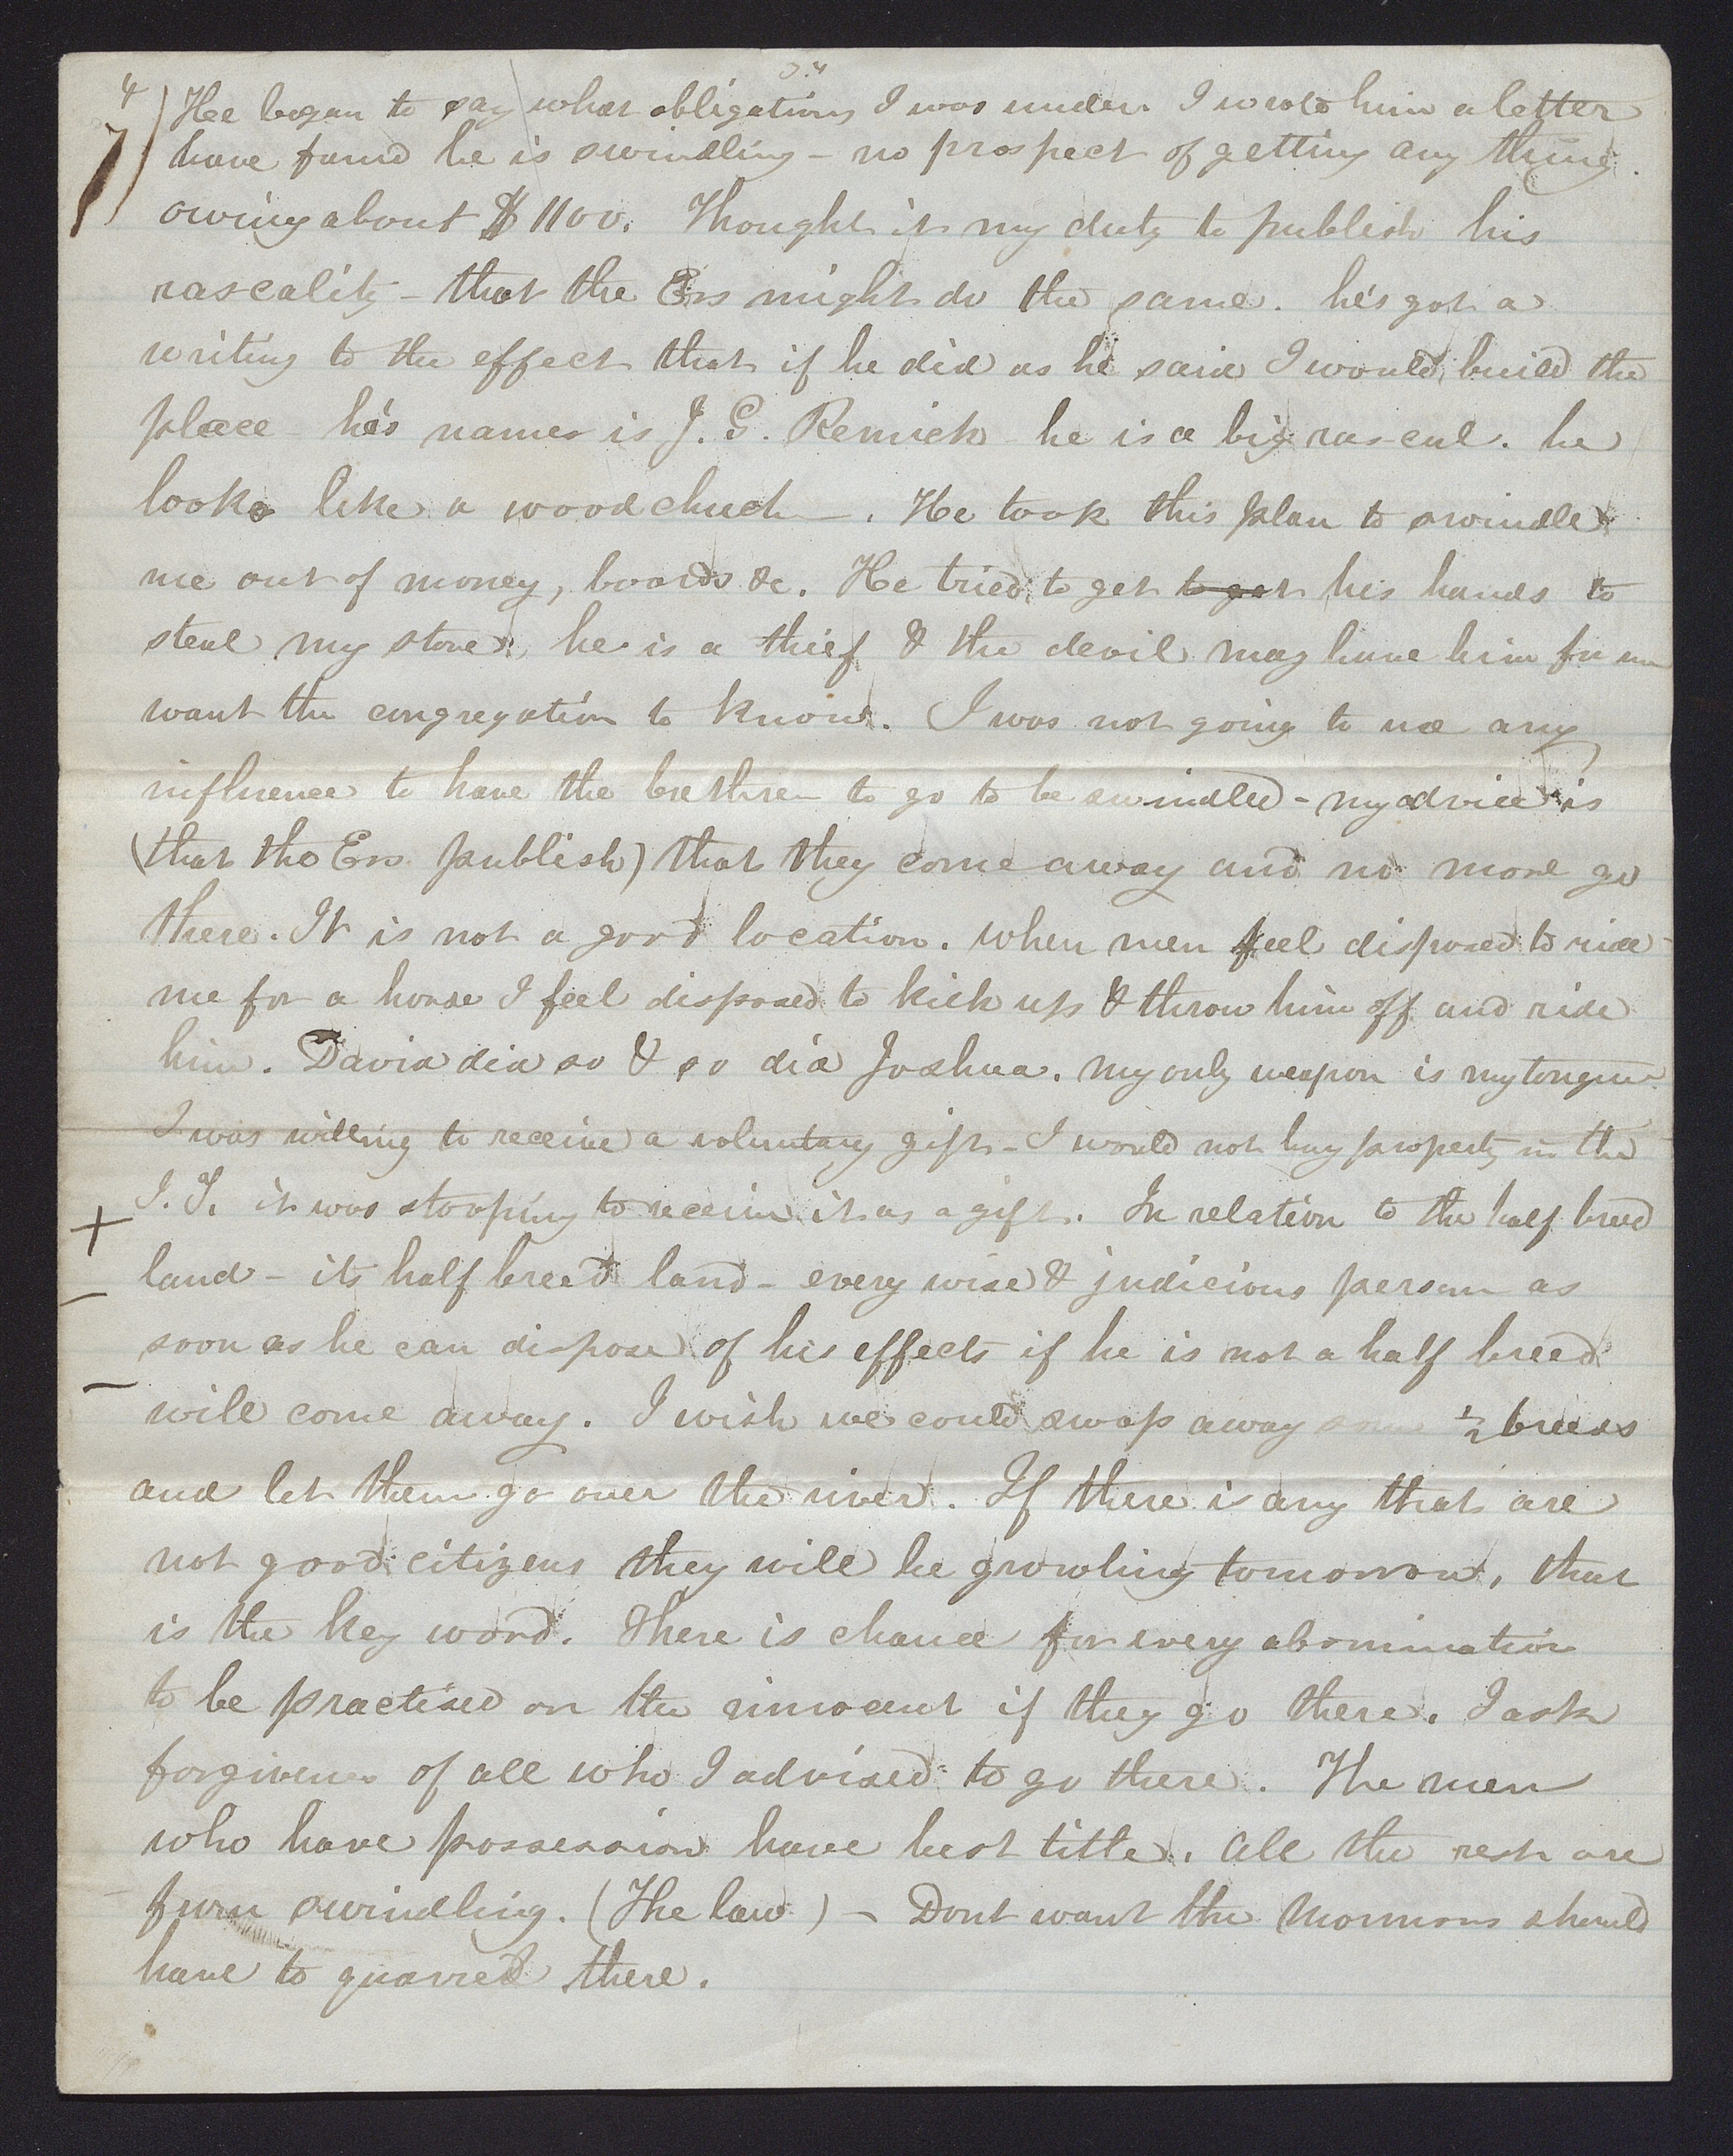 4
7) He began to say what obligations I was under. I wrote him a letter
have found he is swindling - no prospect of getting any thing.
owing about $1100. Thought it my duty to publish his
rascality - that the Ers might do the same. he's got a
writing to the effect that if he did as he said I would build the
place he's names is J. G. Remick he is a big rascal. he
looks like a woodchuck -. He took this plan to swindle
me out of money, boards &c. He tried to get to get his hands to
steal my stone. he is a thief & the devil may have him for
want the congregation to know. I was not going to use any
influence to have the brethren to go to be swindled - my advice is
(that the Ers publish) that they come away and no more go
there. It is not a good location. when men feel disposed to ride
me for a horse I feel disposed to kick up & throw him off and ride
him. David did so & so did Joshua. my only weapon is my tongue
I was willing to receive a voluntary gift - I would not buy property in the
+ I. T. it was stooping to receive it as a gift. In relation to the half breed
land - its half breed land - every wise & judicious person as
soon as he can dispose of his effects if he is not a half breed
will come away. I wish we could swap away some ½ breeds
and let them go over the river. If there is any that are
not good citizens they will be growling tomorrow, that
is the key word. There is chance for every abomination
to be practised on the innocent if they go there. I ask
forgiveness of all who I advised to go there. The men
who have possession have best title. all the rest are
swindling. (The law) - Dont want the Mormons should
have to quarrel there.